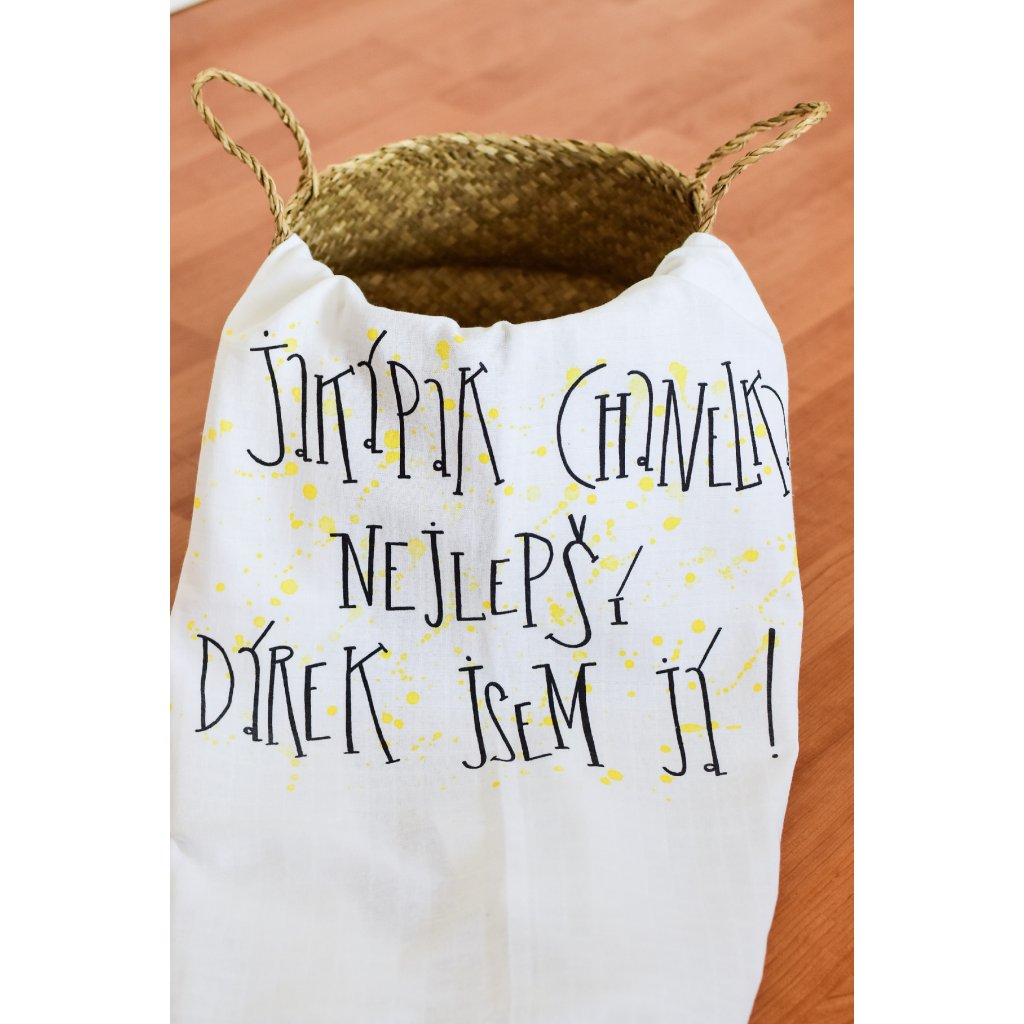 JAKÁPAK CHANELKA
NEJLEPŠÍ
DÁREK JSEM JÁ!